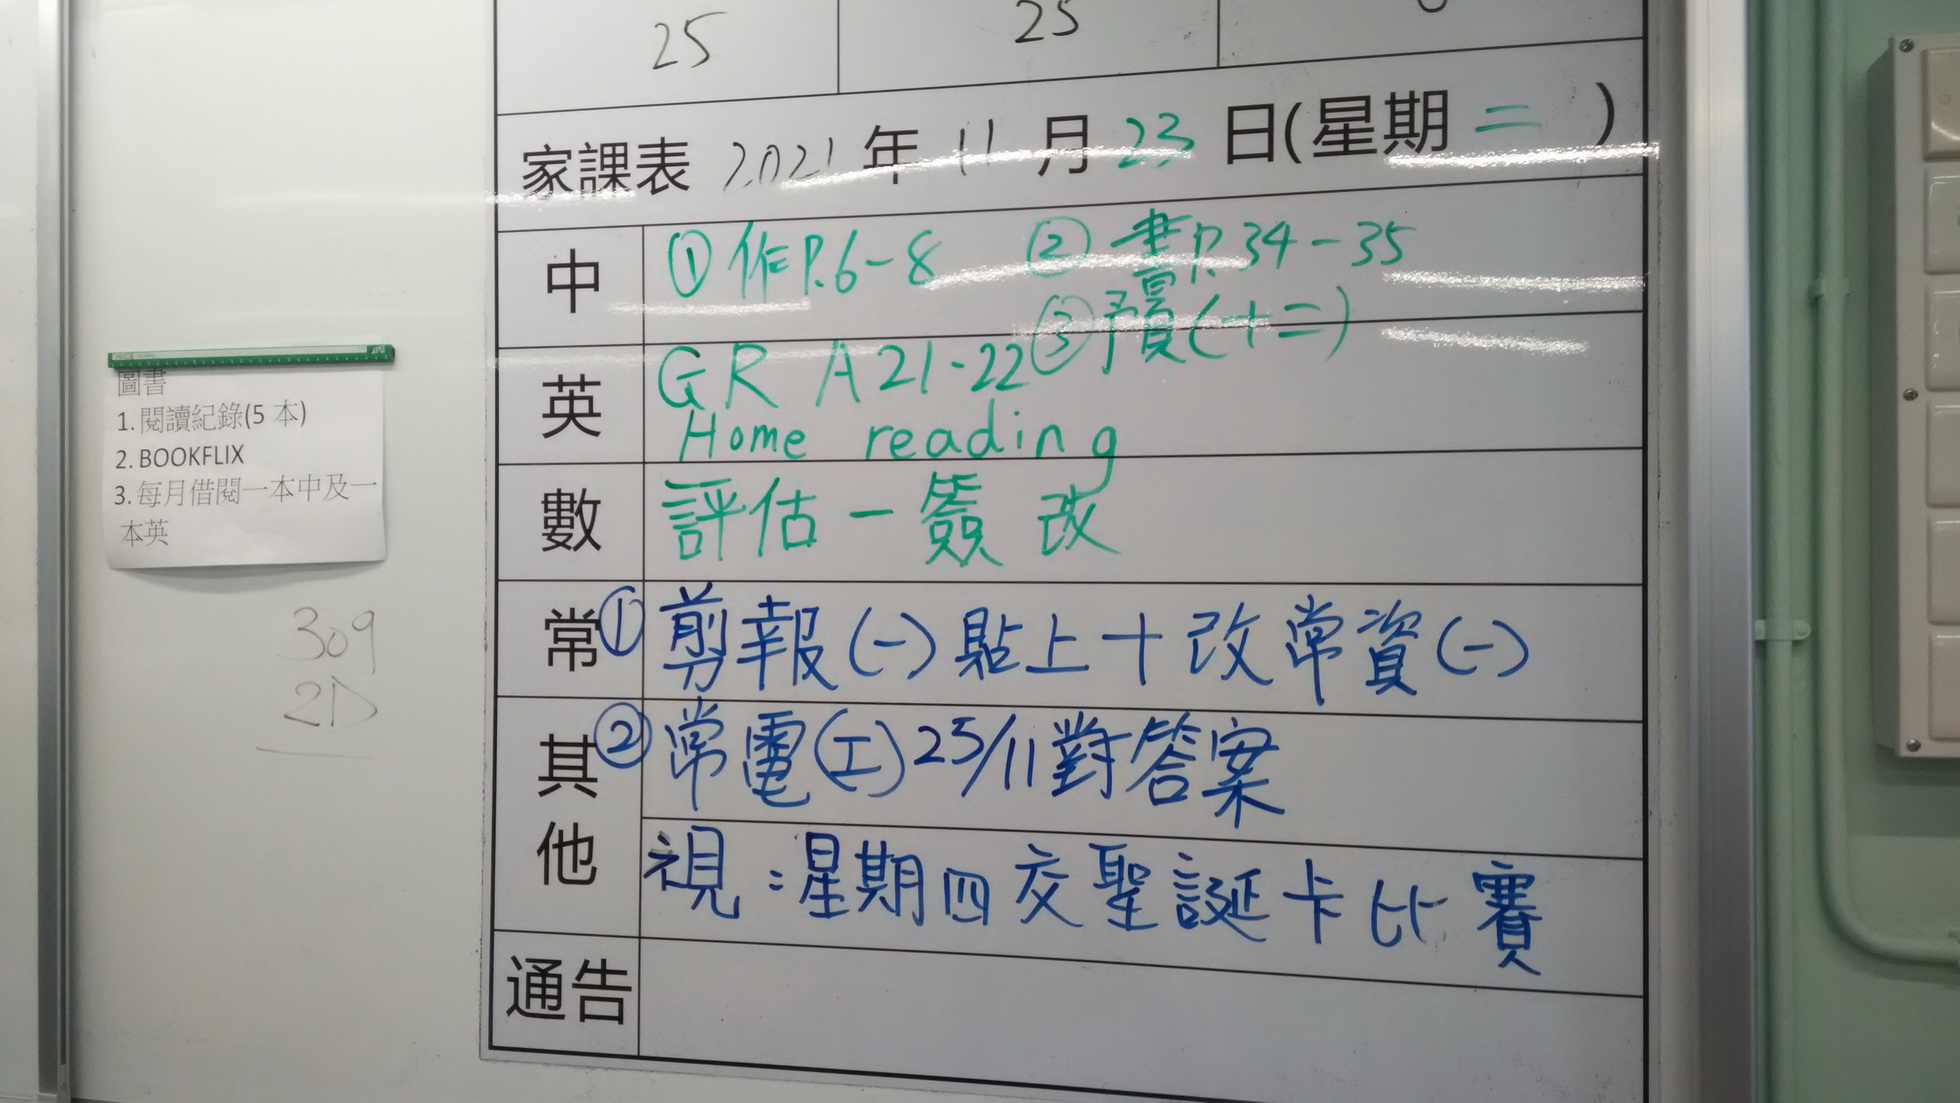 25
25
家課表 2021 年 11 月 23 日(星期 二 )
中 ①作P.6-8 ②書P.34-35
③預(十二)
英 GR A21-22
Home reading
數 評估一簽改
常 ①剪報(一)貼上+改常資(一)
其他 ②常電(工)25/11對答案
視:星期四交聖誕卡比賽
通告
圖書
1. 閱讀紀錄(5 本)
2. BOOKFLIX
3. 每月借閱一本中及一
本英
309
2D